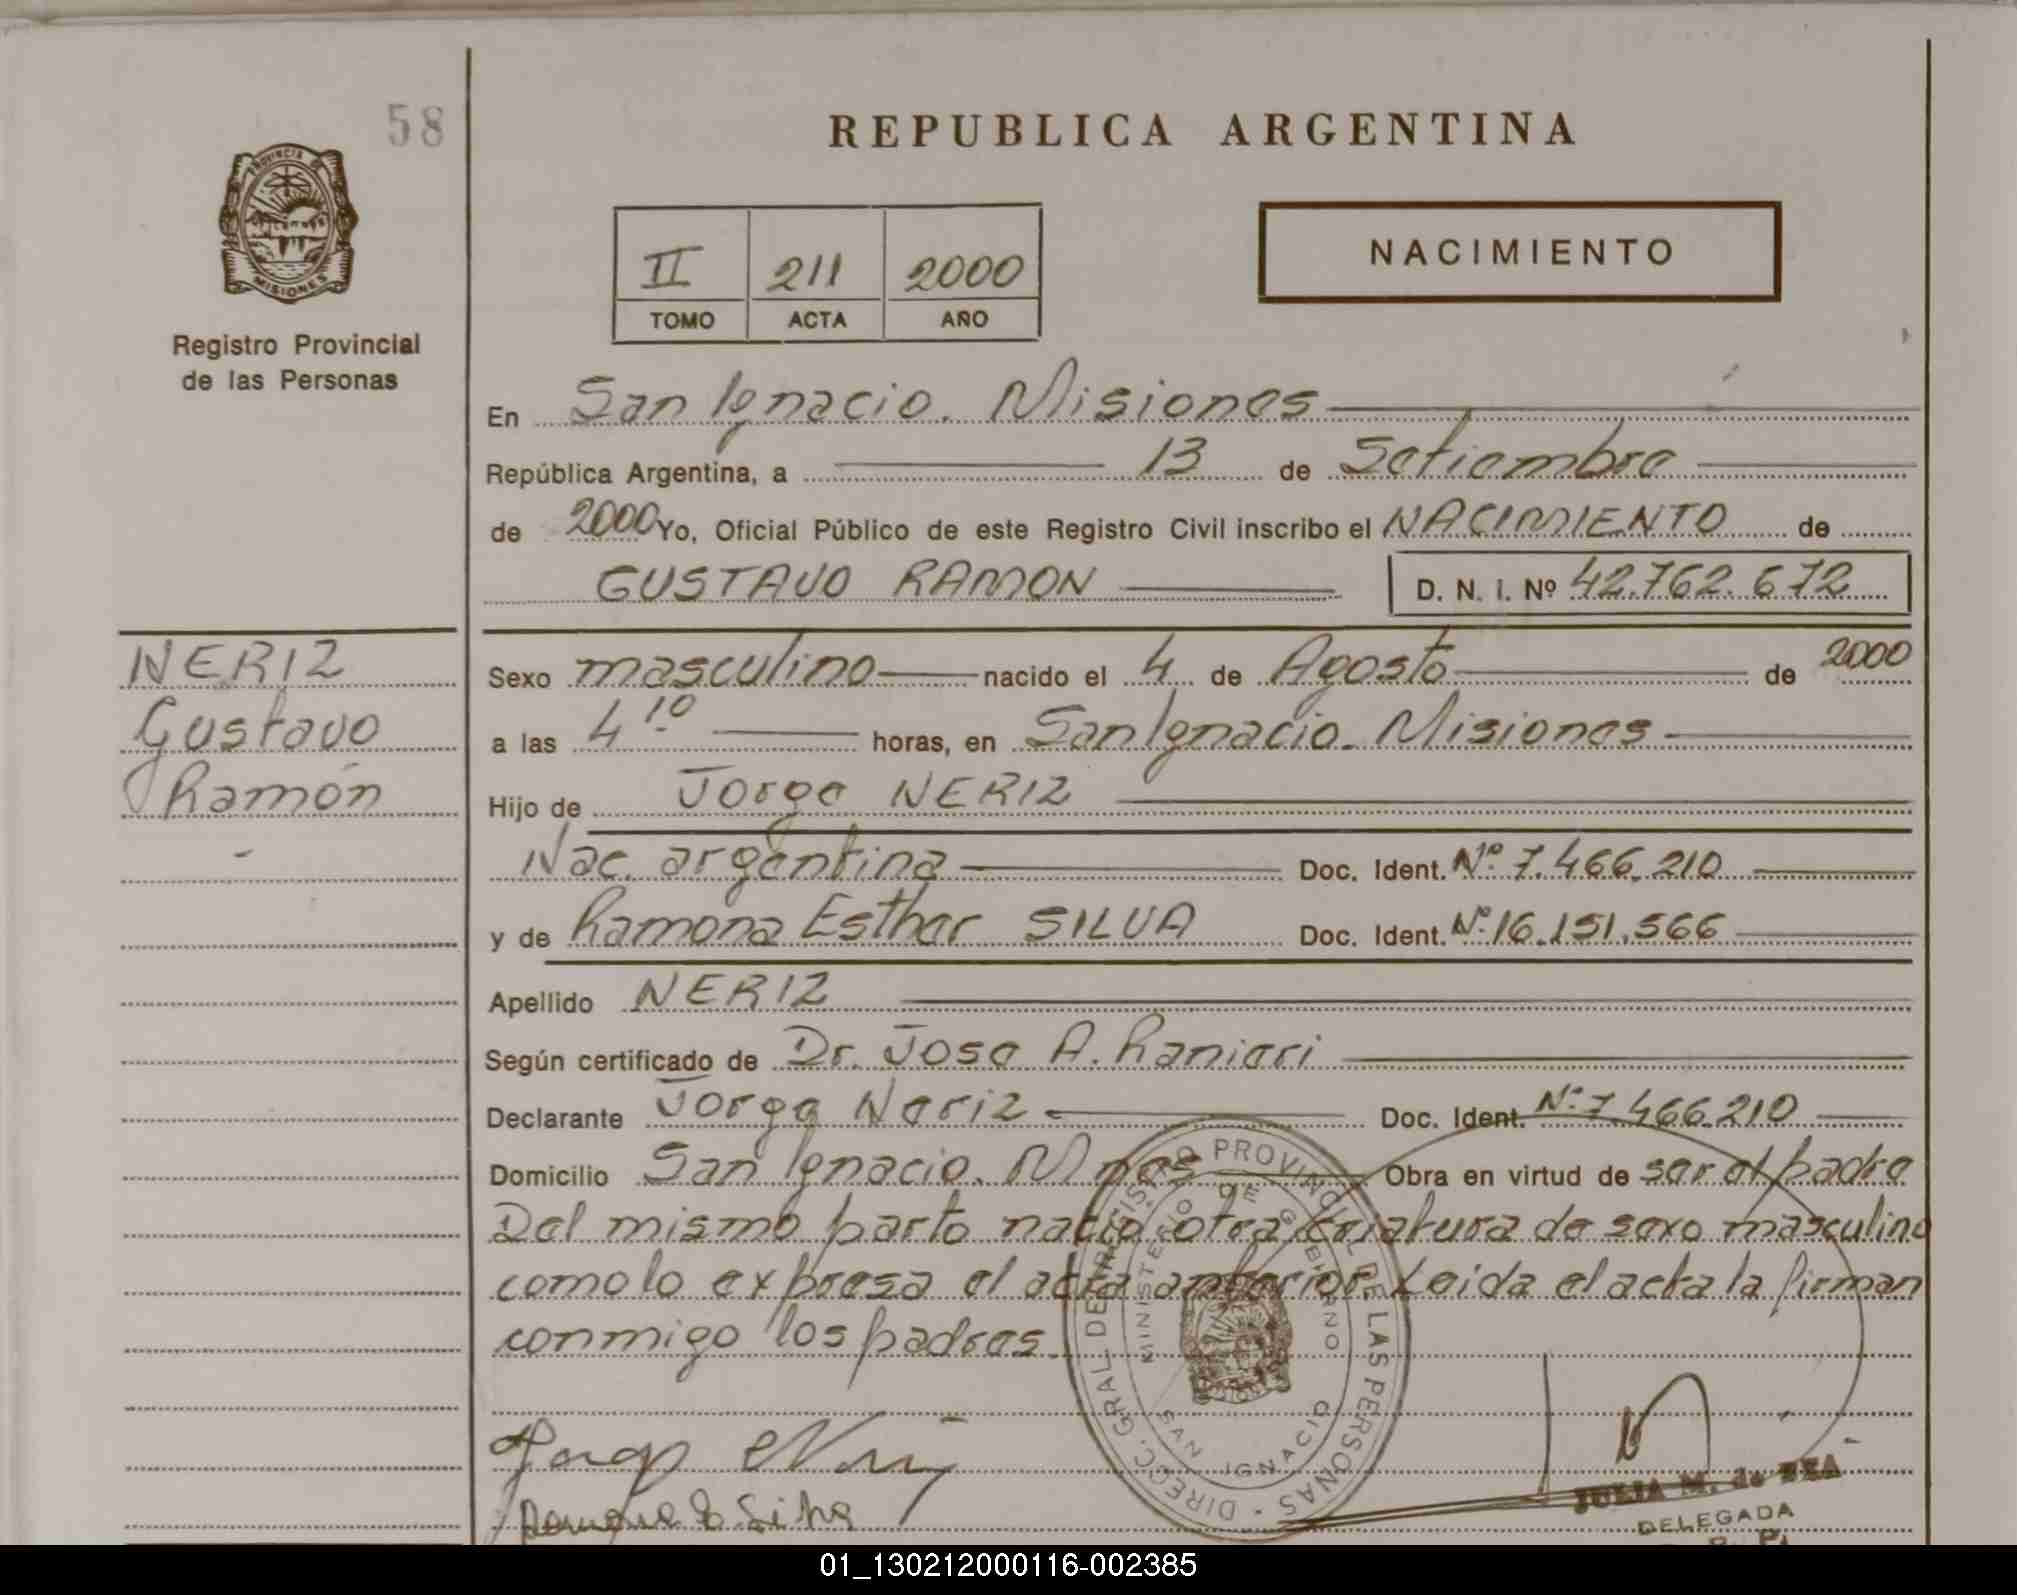 58
REPUBLICA ARGENTINA
PROVINCIA DE
MISIONES
Registro Provincial
de las Personas
II 211 2000
TOMO ACTA AÑO
NACIMIENTO
En San Ignacio. Misiones
República Argentina, a 13 de Setiembre
de 2000 Yo, Oficial Público de este Registro Civil inscribo el NACIMIENTO de
GUSTAVO RAMON D. N. I. Nº 42.762.672
NERIZ
Gustavo
Ramón
Sexo masculino nacido el 4 de Agosto de 2000
a las 4 10 horas, en San Ignacio. Misiones
Hijo de Jorge NERIZ
Nac. argentina Doc. Ident. Nº 7.466.210
y de Ramona Esther SILVA Doc. Ident. Nº 16.151.566
Apellido NERIZ
Según certificado de Dr. Jose A. Ranieri
Declarante Jorge Neriz Doc. Ident. Nº 7.466.210
Domicilio San Ignacio. Mnes Obra en virtud de ser el padre
Del mismo parto nacio otra criatura de sexo masculino
como lo expresa el acta anterior Leida el acta la firman
conmigo los padres.
DIREC. GRAL. DEL REGISTRO PROVINCIAL DE LAS PERSONAS
MINISTERIO DE GOBIERNO
SAN IGNACIO
JULIA M. de ZEA
DELEGADA
01_130212000116-002385